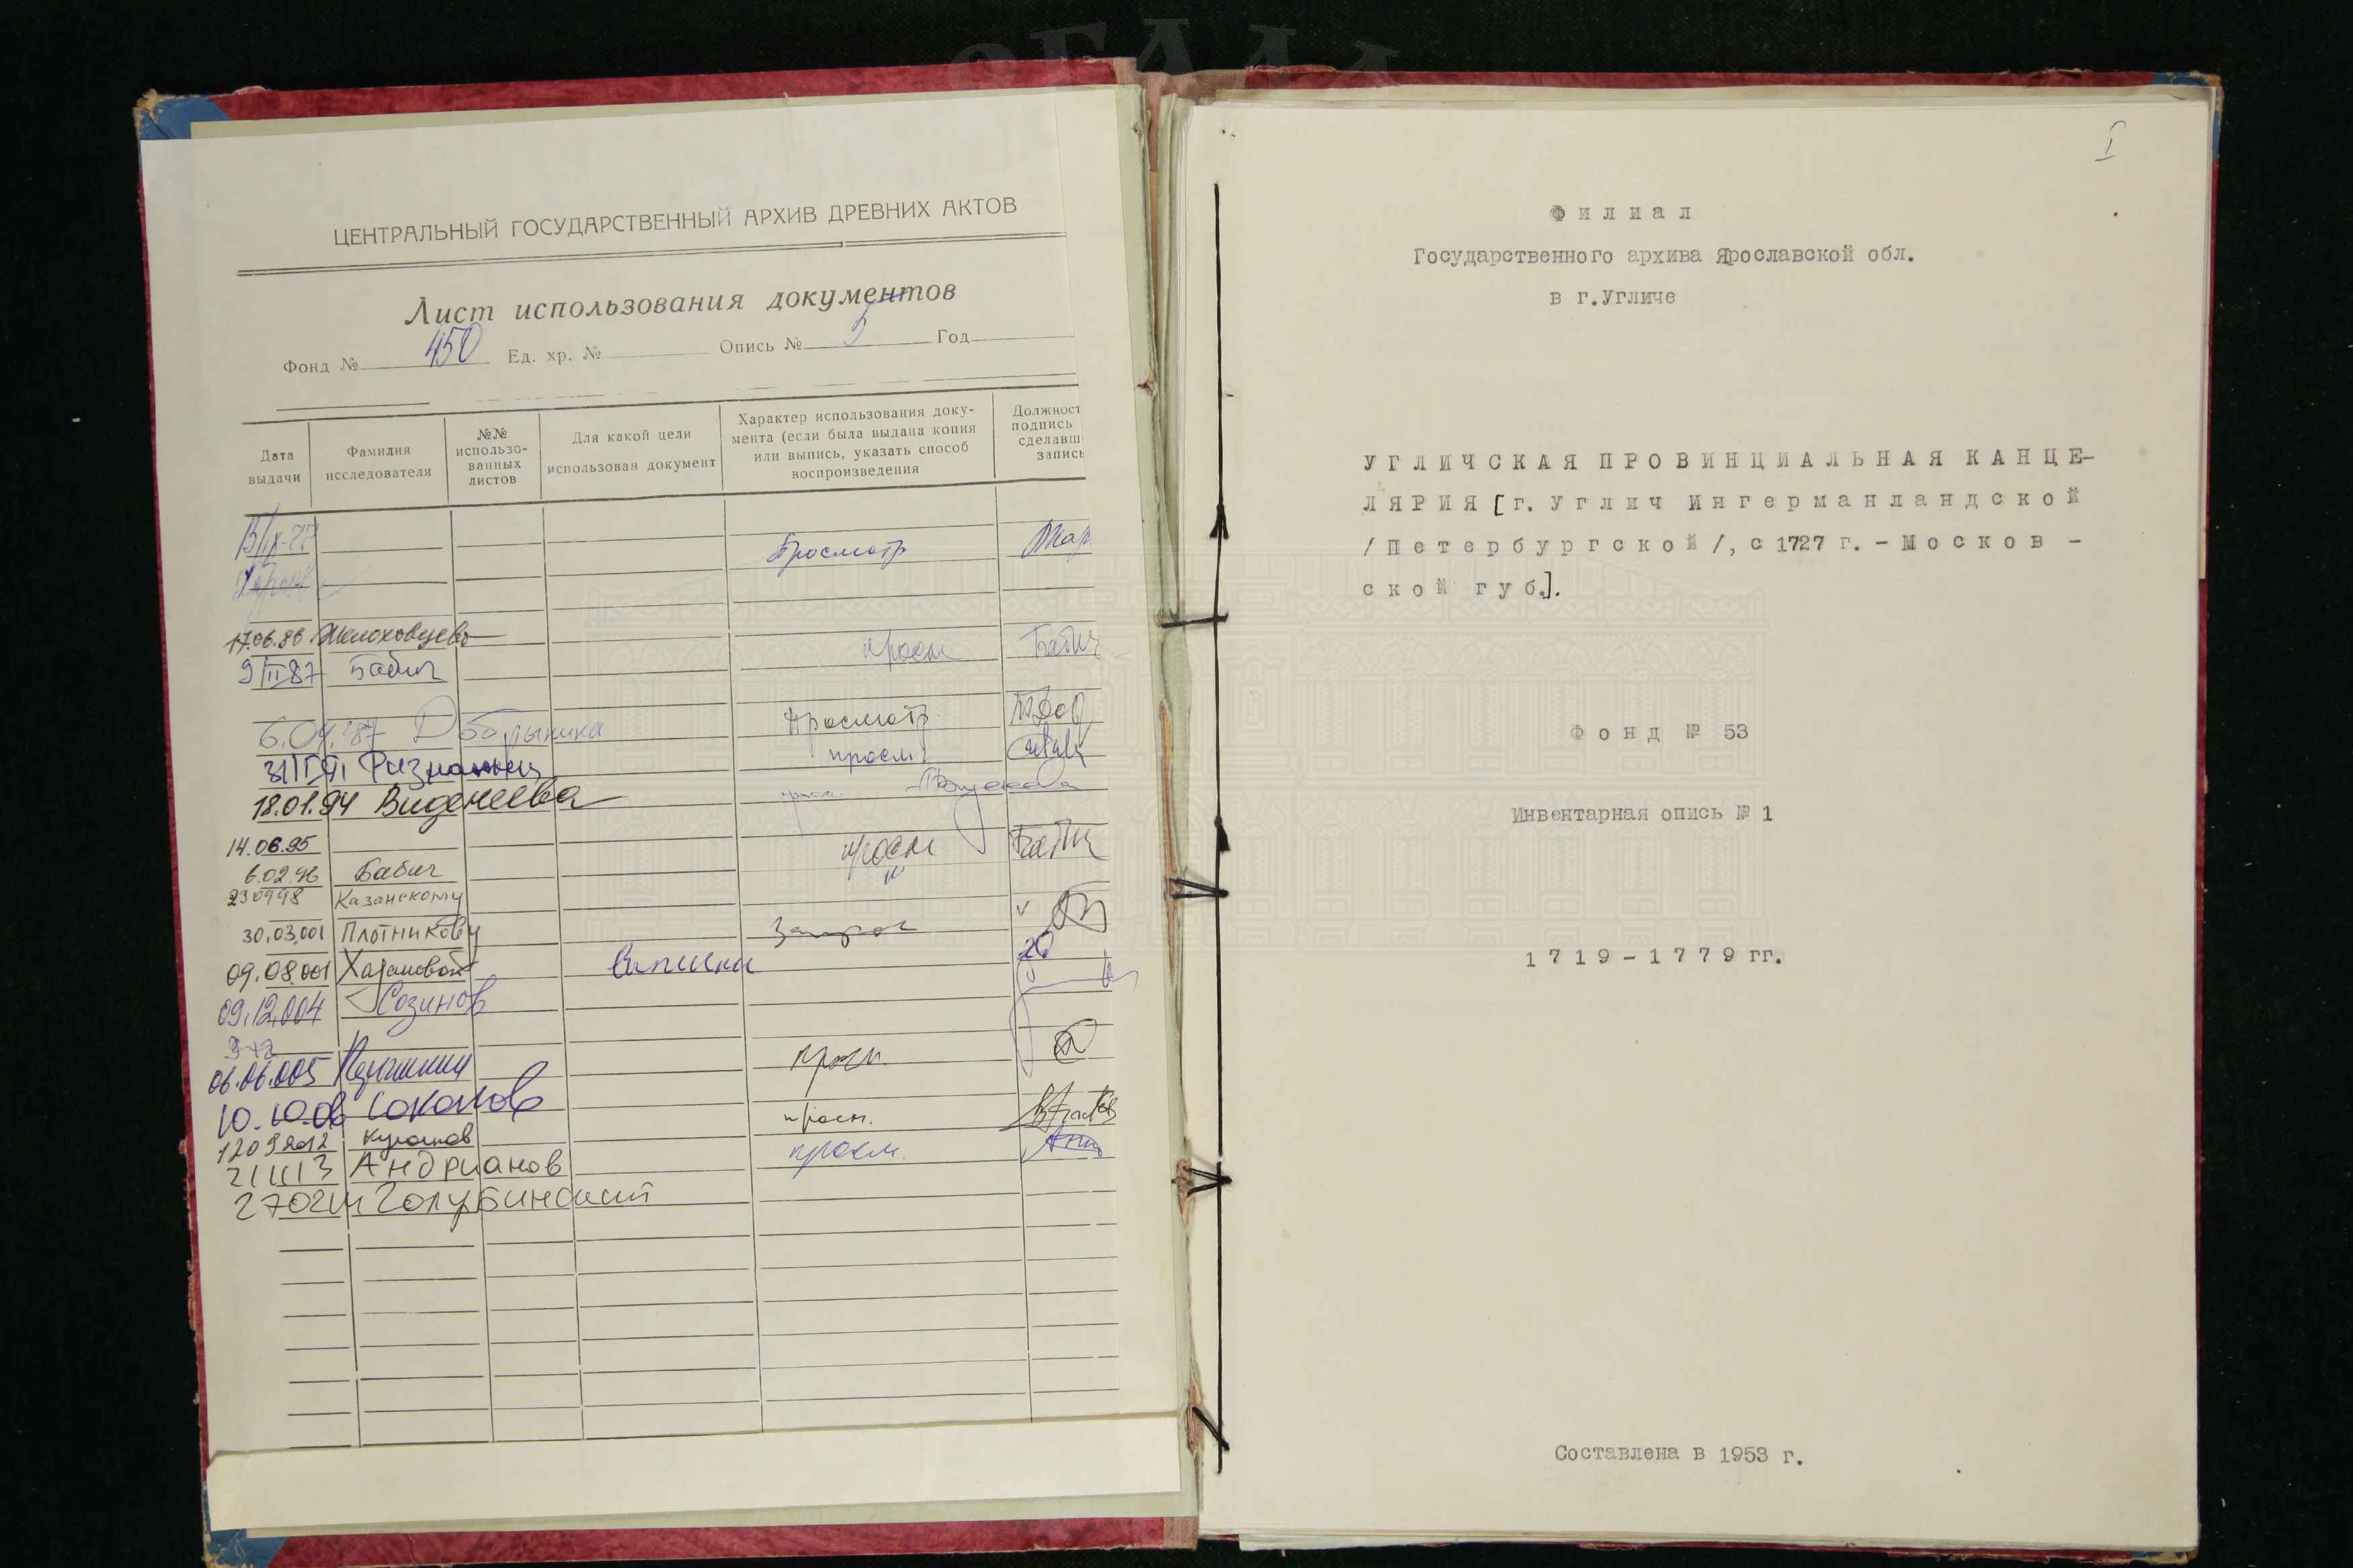 ЦЕНТРАЛЬНЫЙ ГОСУДАРСТВЕННЫЙ АРХИВ ДРЕВНИХ АКТОВ
Лист использования документов
Фонд № 450 Ед. хр. № Опись № 5 Год
Дата выдачи
Фамилия исследователя
№№ использо-
ванных
листов
Для какой цели
использован документ
Характер использования доку-
мента (если была выдана копия
или выпись, указать способ
воспроизведения
Должност
подпись
сделавш
запись
Просмотр
17.06.86
9/III 87 Бабич просм Бабич
6.04.87 Добрынина Просмотр
просм
18.01.94 Виденеева просм.
14.06.95 просм
6.02.96 Бабич
230998 Казанскому
30.03.001 Плотникову Запрос
09.08.001 Выписки
09.12.004 Созинов
06.06.005 просм.
10.10.06 Соколов просм.
12092012
211113 Андрианов просм.
Голубинский
I
Филиал
Государственного архива Ярославской обл.
в г.Угличе
УГЛИЧСКАЯ ПРОВИНЦИАЛЬНАЯ КАНЦЕ-
ЛЯРИЯ [г. Углич Ингерманландской
/Петербургской/, с 1727 г. - Москов -
ской губ.].
Фонд № 53
Инвентарная опись № 1
1719 - 1779 гг.
Составлена в 1953 г.